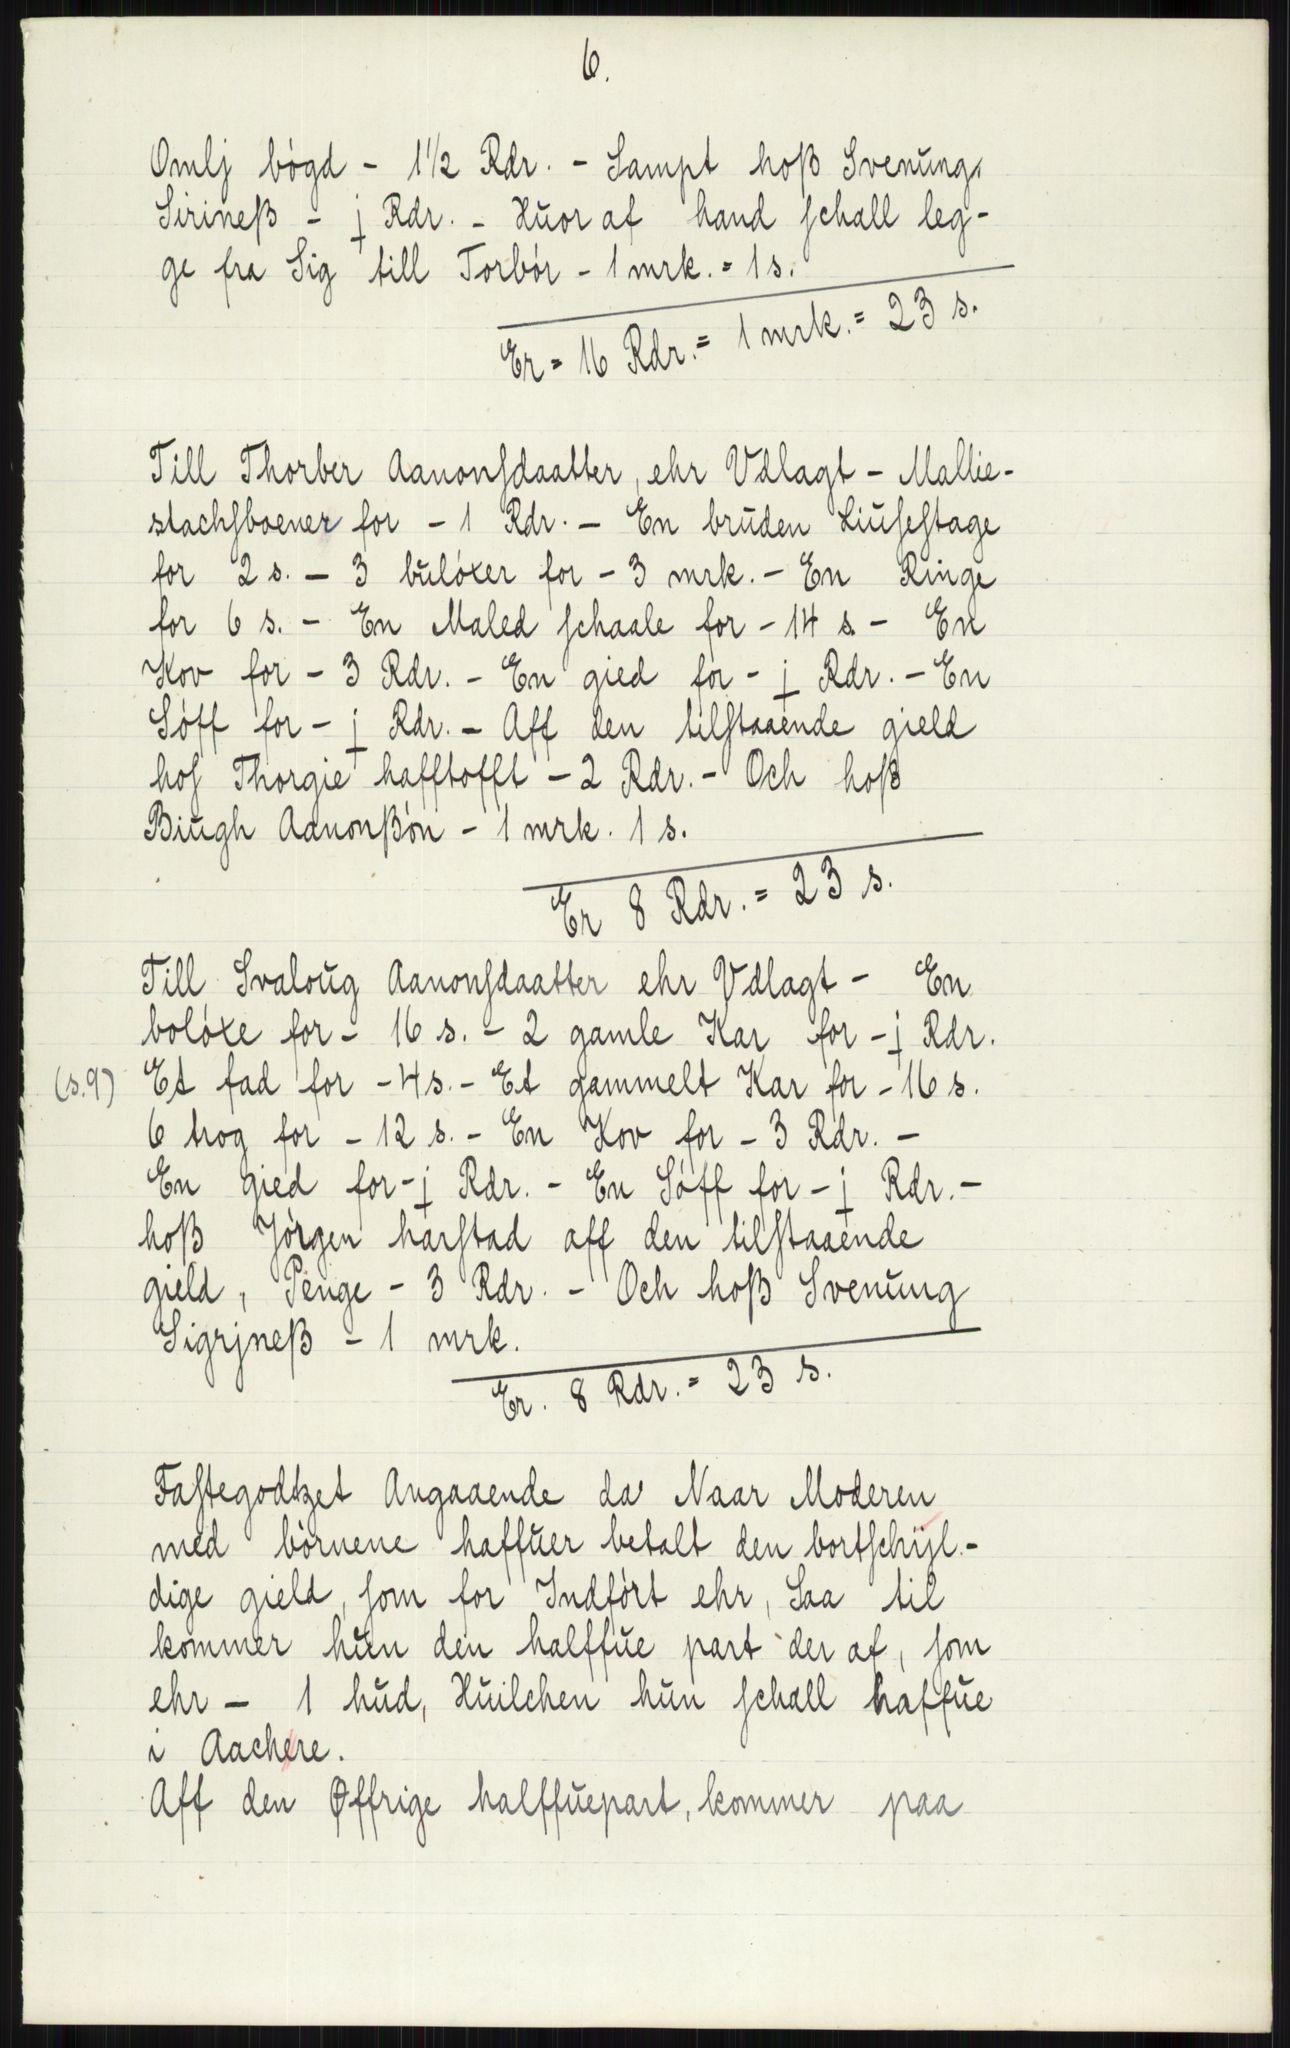 6.
Omlj bógd - 1½ Rdr. - Sampt hoß Svenung
Sirineß - j Rdr. - Huor af hand schall leg-
ge fra Sig till Torbór - 1 mrk. = 1 s.
Er = 16 Rdr. = 1 mrk. = 23 s.
Till Thorber Aanonsdaatter, ehr Vdlagt - Mallie-
stachsboener for - 1 Rdr. - En bruden Liusestage
for 2 s. - 3 bulóxer for - 3 mrk. - En Ringe
for 6 s. - En Maled schaale for - 14 s - En
Kov for - 3 Rdr. - En gied for - j Rdr. - En
Sóff for - j Rdr. - Aff den tilstaaende gield
hos Thorgie hafftofft - 2 Rdr. - Och hoß
Biugh Aanonßón - 1 mrk. 1 s.
Er 8 Rdr. = 23 s.
Till Svaloug Aanonsdaatter ehr Vdlagt - En
bolóxe for - 16 s. - 2 gamle Kar for - j Rdr.
(s.9) Et fad for - 4 s. - Et gammelt Kar for - 16 s.
6 trog for - 12 s. - En Kov for - 3 Rdr. -
En gied for - j Rdr. - En Sóff for - j Rdr. -
hoß Jórgen harstad aff den tilstaaende
gield, Penge - 3 Rdr. - Och hoß Svenung
Sigrjneß - 1 mrk.
Er. 8 Rdr. = 23 s.
Fastegodtzet Angaaende da Naar Moderen
med bórnene haffuer betalt den bortschijl-
dige gield, som for Indfórt ehr, Saa til
kommer hun den halffue part der af, som
ehr - 1 hud, Huilchen hun schall haffue
i Aachere.
Aff den Øffrige halffuepart, kommer paa